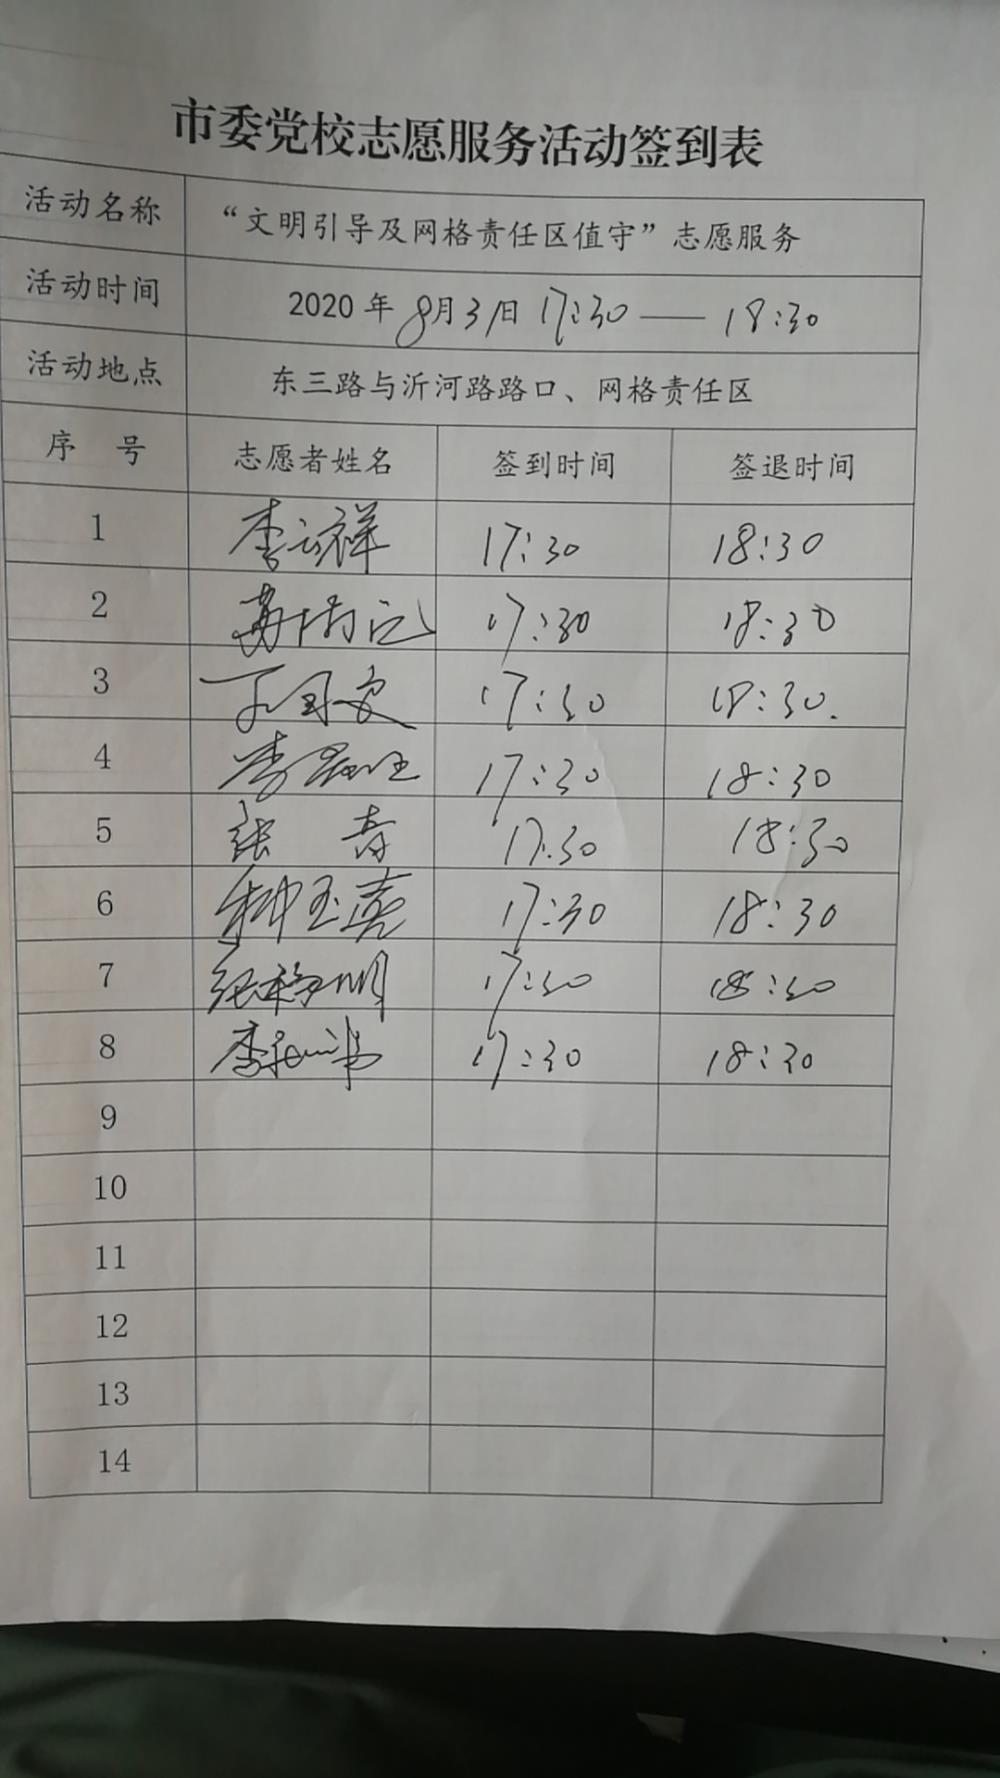 市委党校志愿服务活动签到表
活动名称 “文明引导及网格责任区值守”志愿服务
活动时间 2020年8月31日 17:30——18:30
活动地点 东三路与沂河路路口、网格责任区
序 号 志愿者姓名 签到时间 签退时间
1 李云祥 17:30 18:30
2 17:30 18:30
3 17:30 18:30.
4 李 17:30 18:30
5 张青 17:30 18:30
6 17:30 18:30
7 明 17:30 18:30
8 李 17:30 18:30
9
10
11
12
13
14